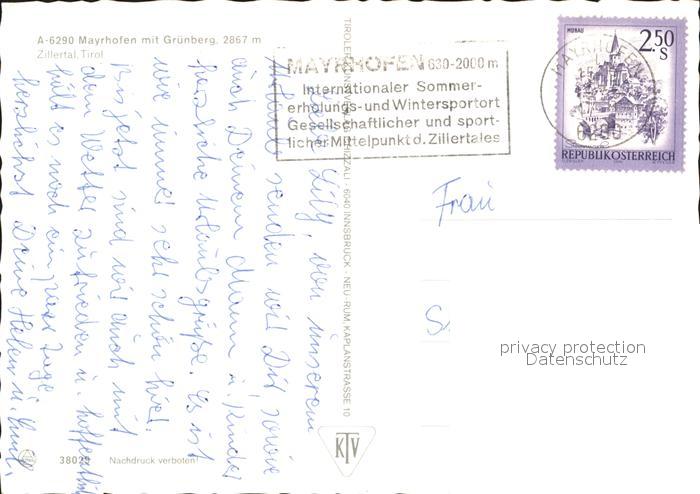 A-6290 Mayrhofen mit Grünberg, 2867 m
Zillertal, Tirol
MAYRHOFEN 630-2000 m
Internationaler Sommer-
erholungs- und Wintersportort
Gesellschaftlicher und sport-
licher Mittelpunkt d. Zillertales
MURAU
2.50
S
REPUBLIK ÖSTERREICH
MAYRHOFEN
6290
Liebe Lilly, von unserem
Urlaub senden wir Dir, sowie
auch Deinem Mann u. Kinder
herzliche Urlaubsgrüße. Es ist
wie immer sehr schön hier.
Bis jetzt sind wir auch mit
dem Wetter zufrieden u. hoffentlich
hält es noch ein paar Tage
herzlichst Deine Helen u.
Frau
S
privacy protection
Datenschutz
6040 INNSBRUCK - NEU-RUM, KAPLANSTRASSE 10
KTV
38029 Nachdruck verboten